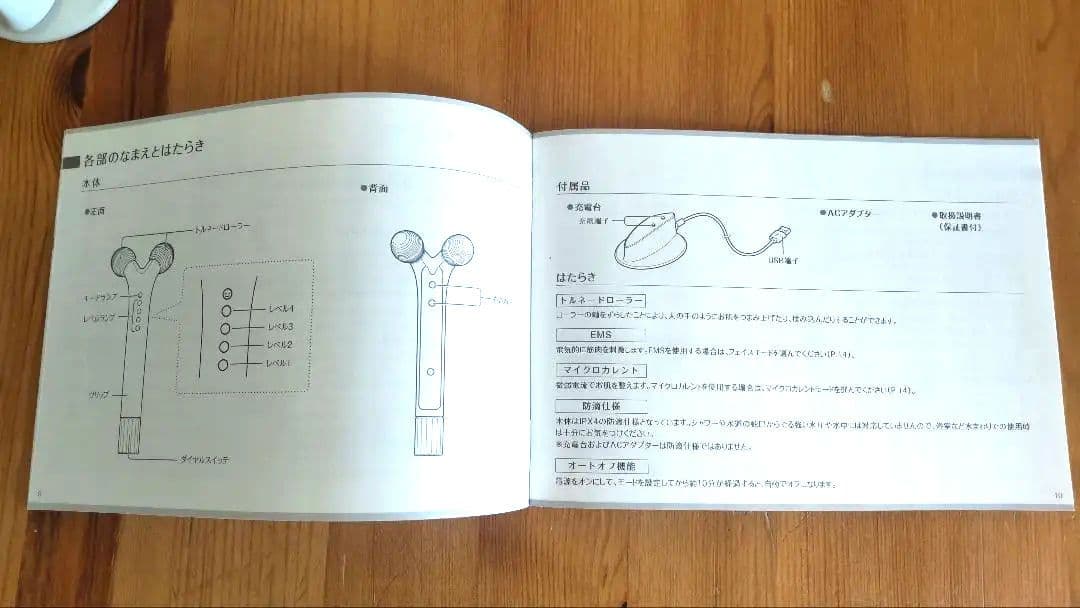 各部のなまえとはたらき
本体
●正面
トルネードローラー
モードランプ
レベルランプ
レベル4
レベル3
レベル2
レベル1
グリップ
ダイヤルスイッチ
●背面
付属品
●充電台
充電端子
USB端子
●ACアダプター
●取扱説明書
(保証書付)
はたらき
トルネードローラー
ローラーの軸をずらしたことにより、人の手のようにお肌をつまみ上げたり、揉み込んだりすることができます。
EMS
電気的に筋肉を刺激します。EMSを使用する場合は、フェイスモードを選んでください(P.14)。
マイクロカレント
微弱電流でお肌を整えます。マイクロカレントを使用する場合は、マイクロカレントモードを選んでください(P.14)。
防滴仕様
本体はIPX4の防滴仕様となっています。シャワーや水道の蛇口からでる強い水圧や水中には対応していませんので、浴室など水まわりでの使用時
は十分にお気をつけください。
※充電台およびACアダプターは防滴仕様ではありません。
オートオフ機能
電源をオンにして、モードを設定してから約10分が経過すると、自動でオフになります。
10